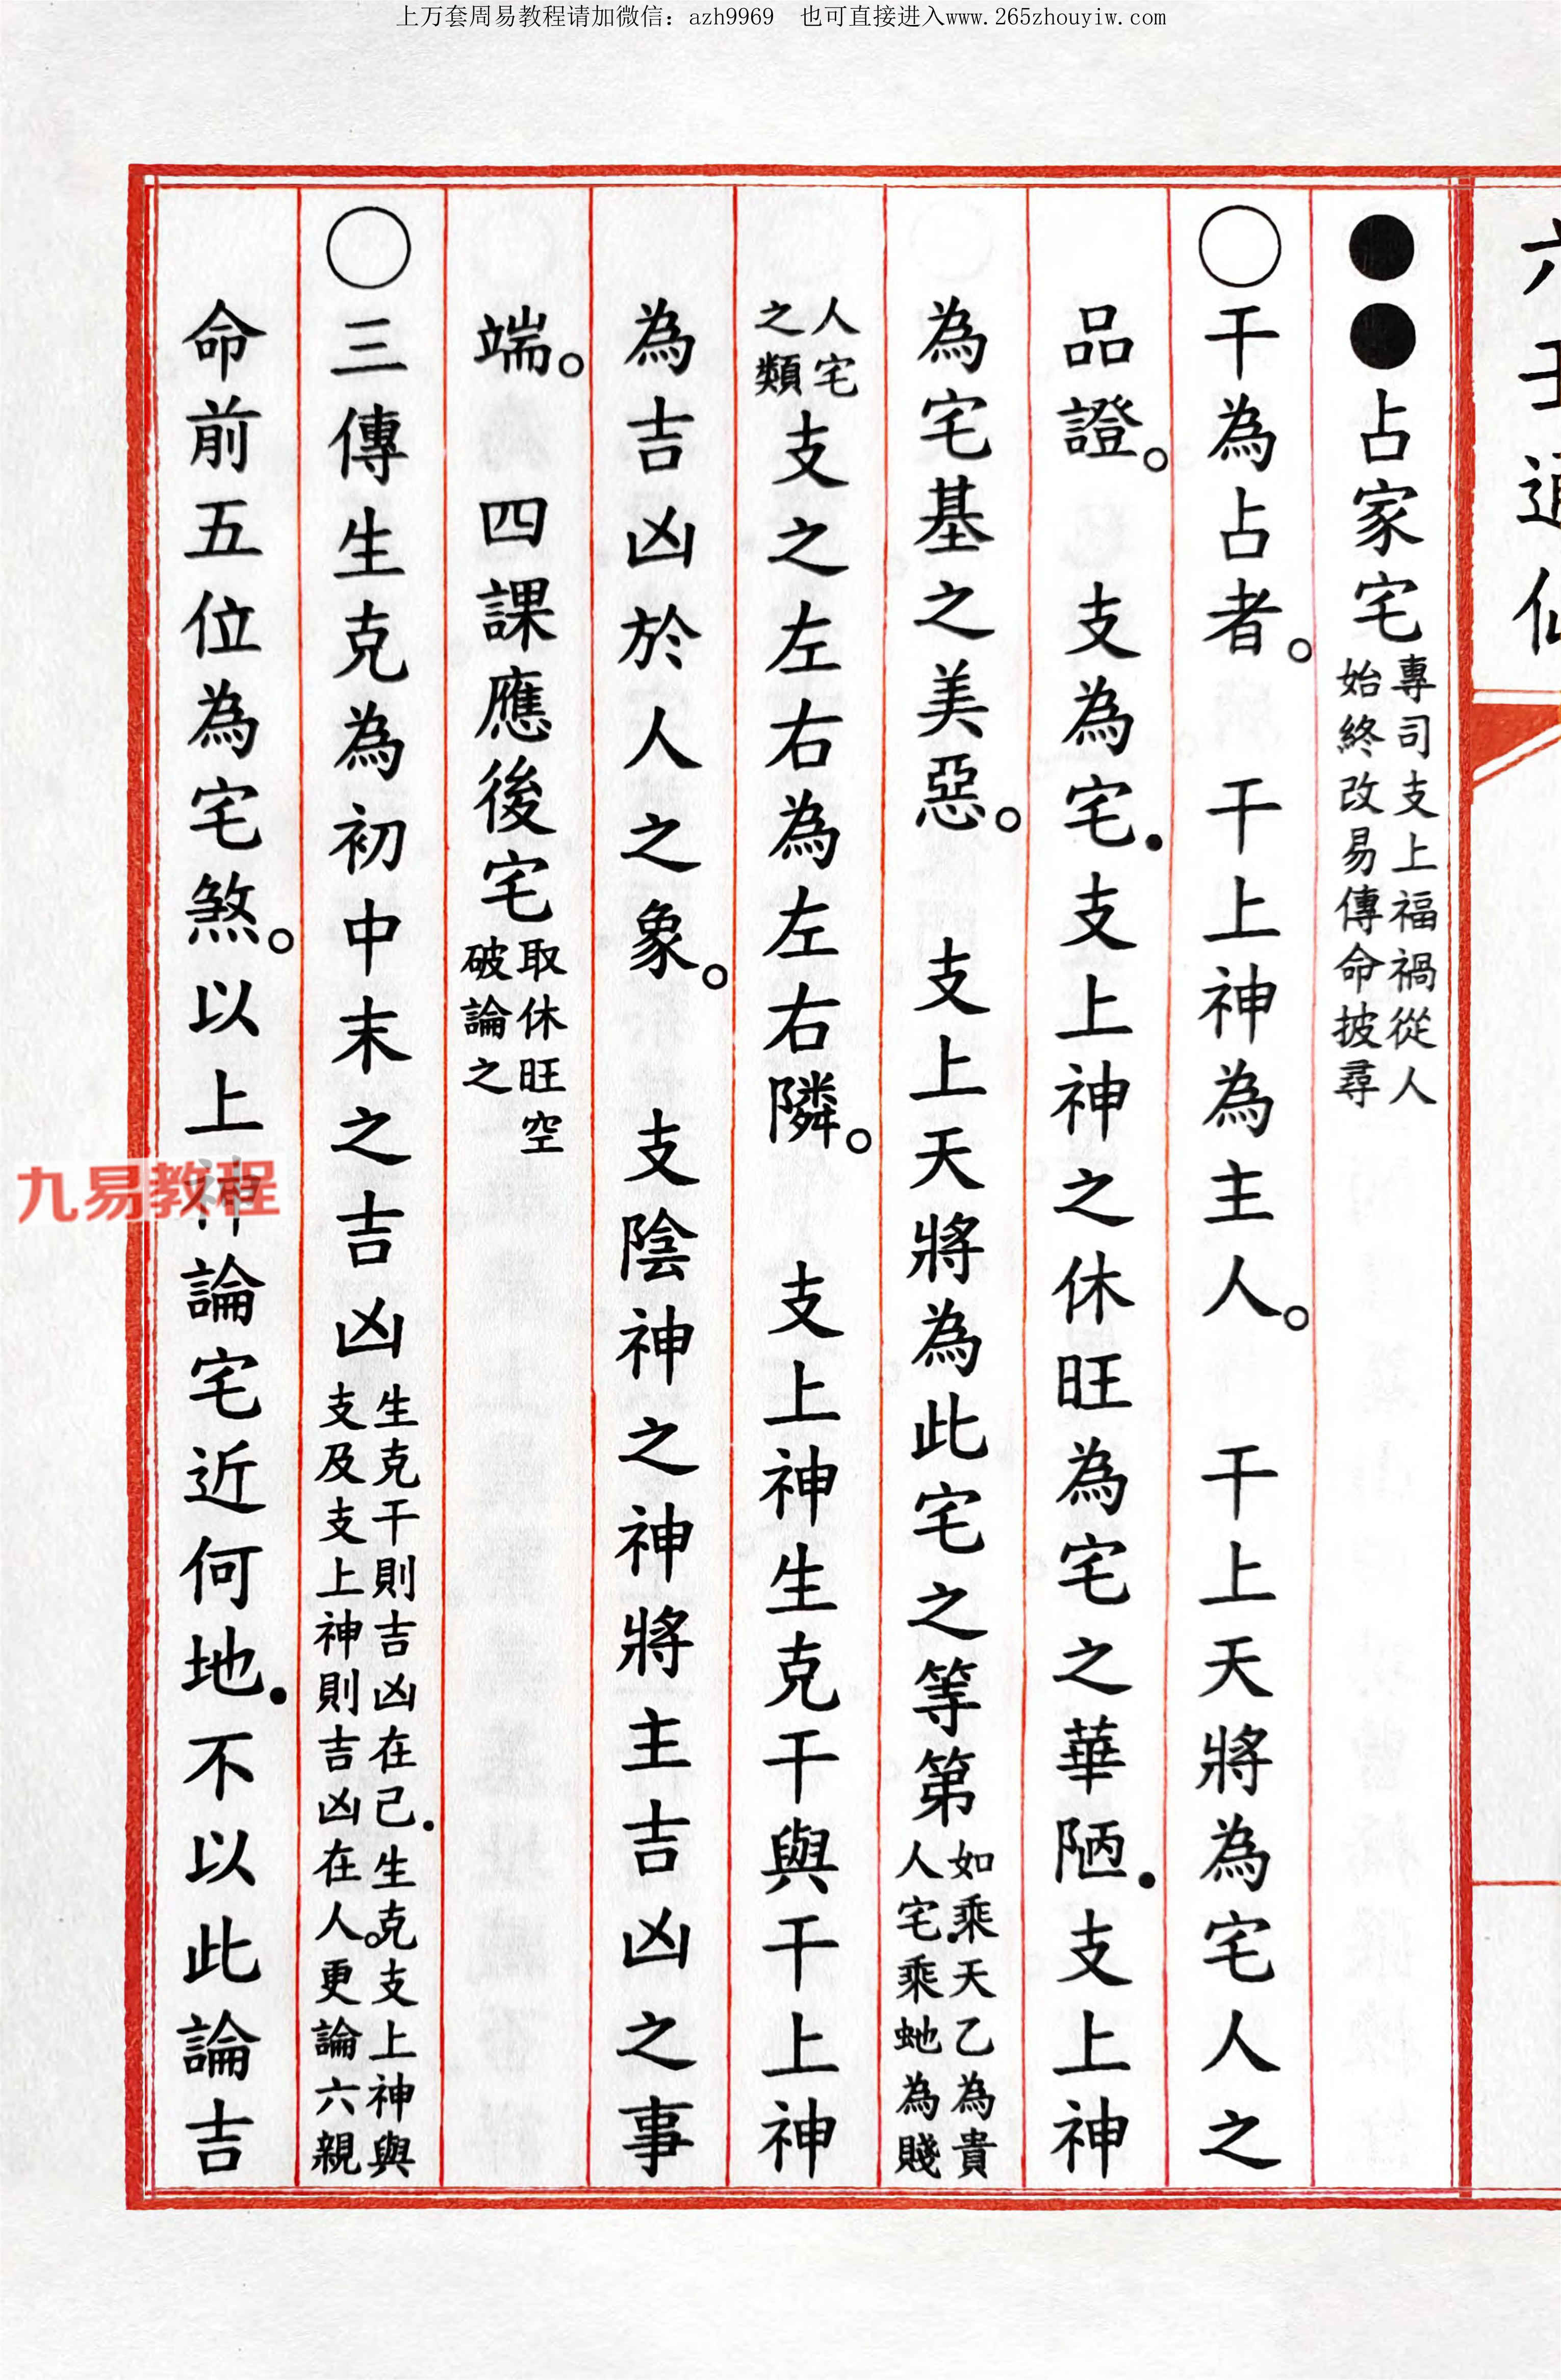 上万套周易教程请加微信：azh9969 也可直接进入www.265zhouyiw.com
六壬通仙
●●占家宅專司支上福禍從人始終改易傳命披尋
○干為占者。 干上神為主人。 干上天將為宅人之
品證。 支為宅．支上神之休旺為宅之華陋．支上神
為宅基之美惡。 支上天將為此宅之等第如乘天乙為貴人宅乘虵為賤
人宅之類支之左右為左右隣。 支上神生克干與干上神
為吉凶於人之象。 支陰神之神將主吉凶之事
端。 四課應後宅取休旺空破論之
○三傳生克為初中末之吉凶生克干則吉凶在己．生克支上神與支及支上神則吉凶在人。更論六親
命前五位為宅煞。以上神論宅近何地．不以此論吉
九易教程